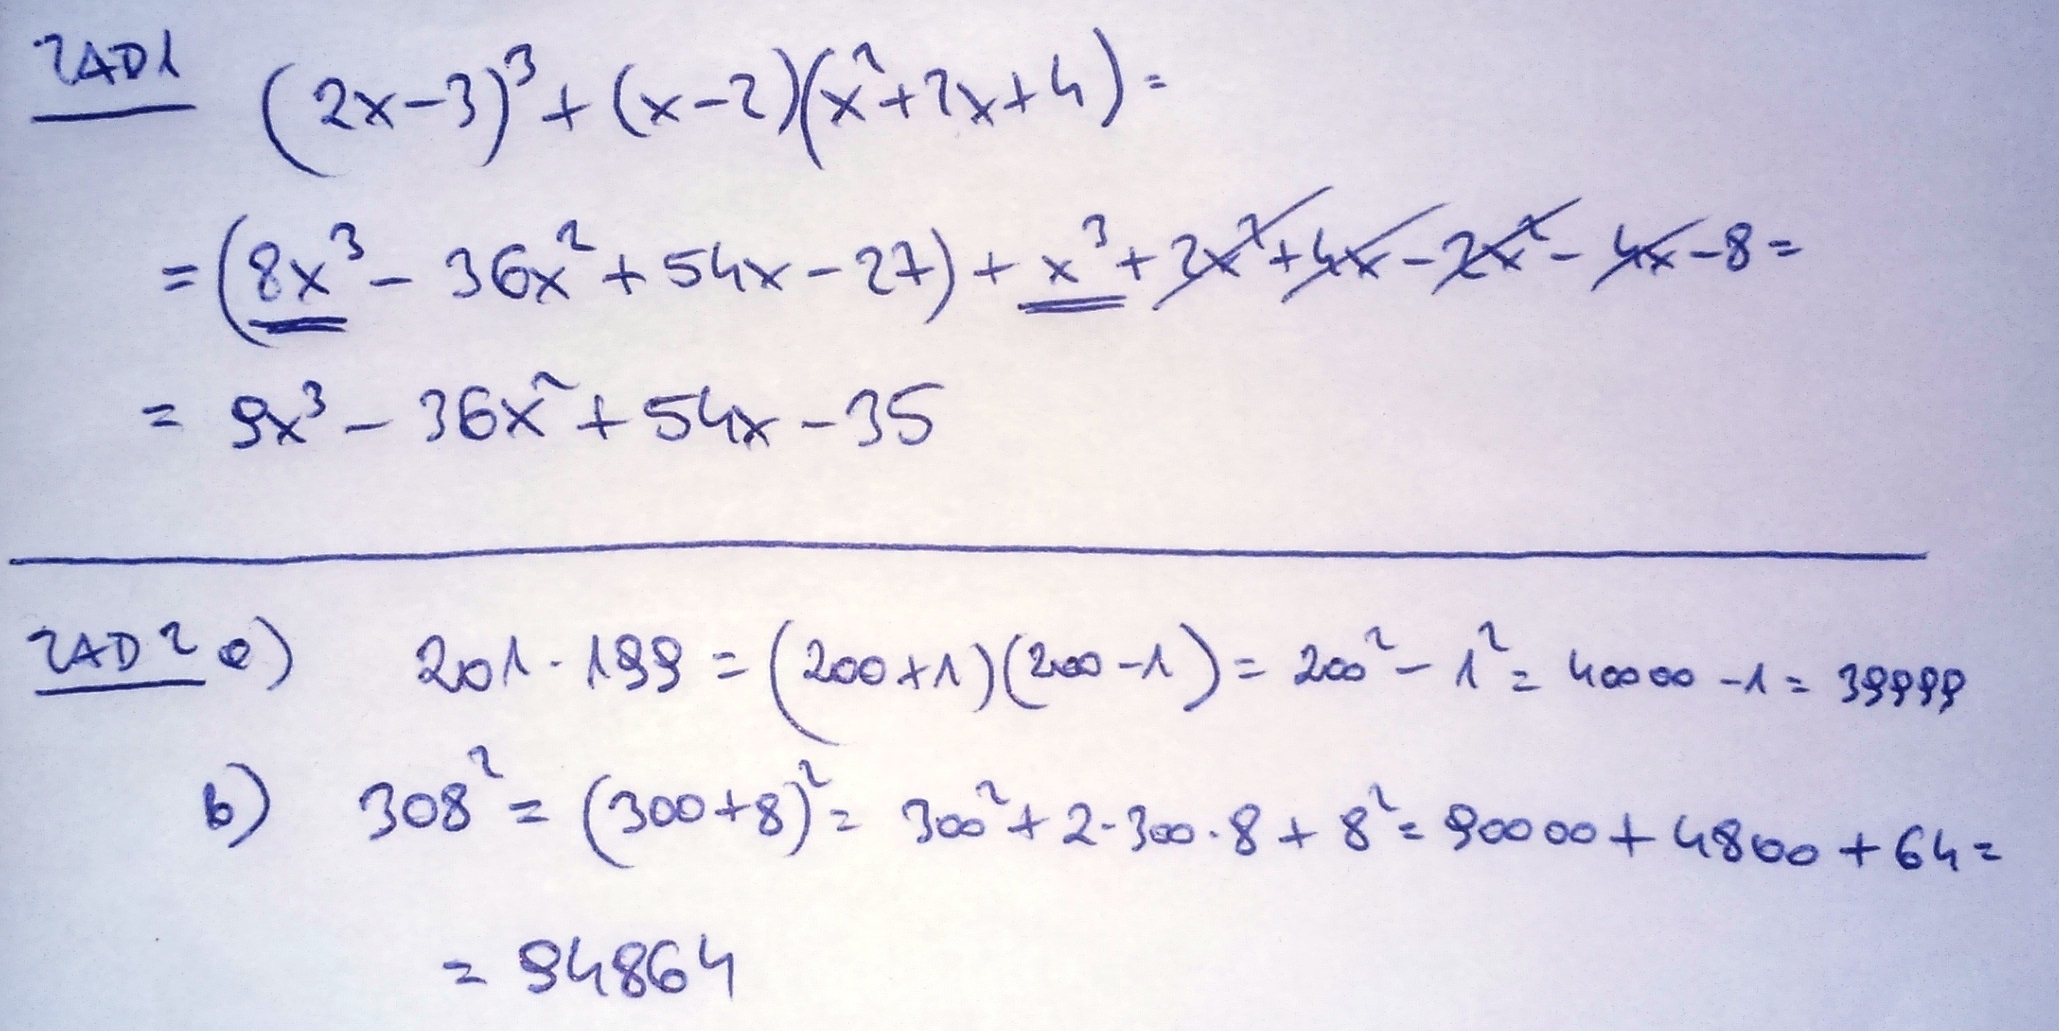 ZAD1 (2x-3)³+(x-2)(x²+2x+4)=
=(8x³-36x²+54x-27)+x³+2x²+4x-2x²-4x-8=
=9x³-36x²+54x-35
ZAD2 a) 201·199=(200+1)(200-1)=200²-1²=40000-1=39999
b) 308²=(300+8)²=300²+2·300·8+8²=90000+4800+64=
=94864